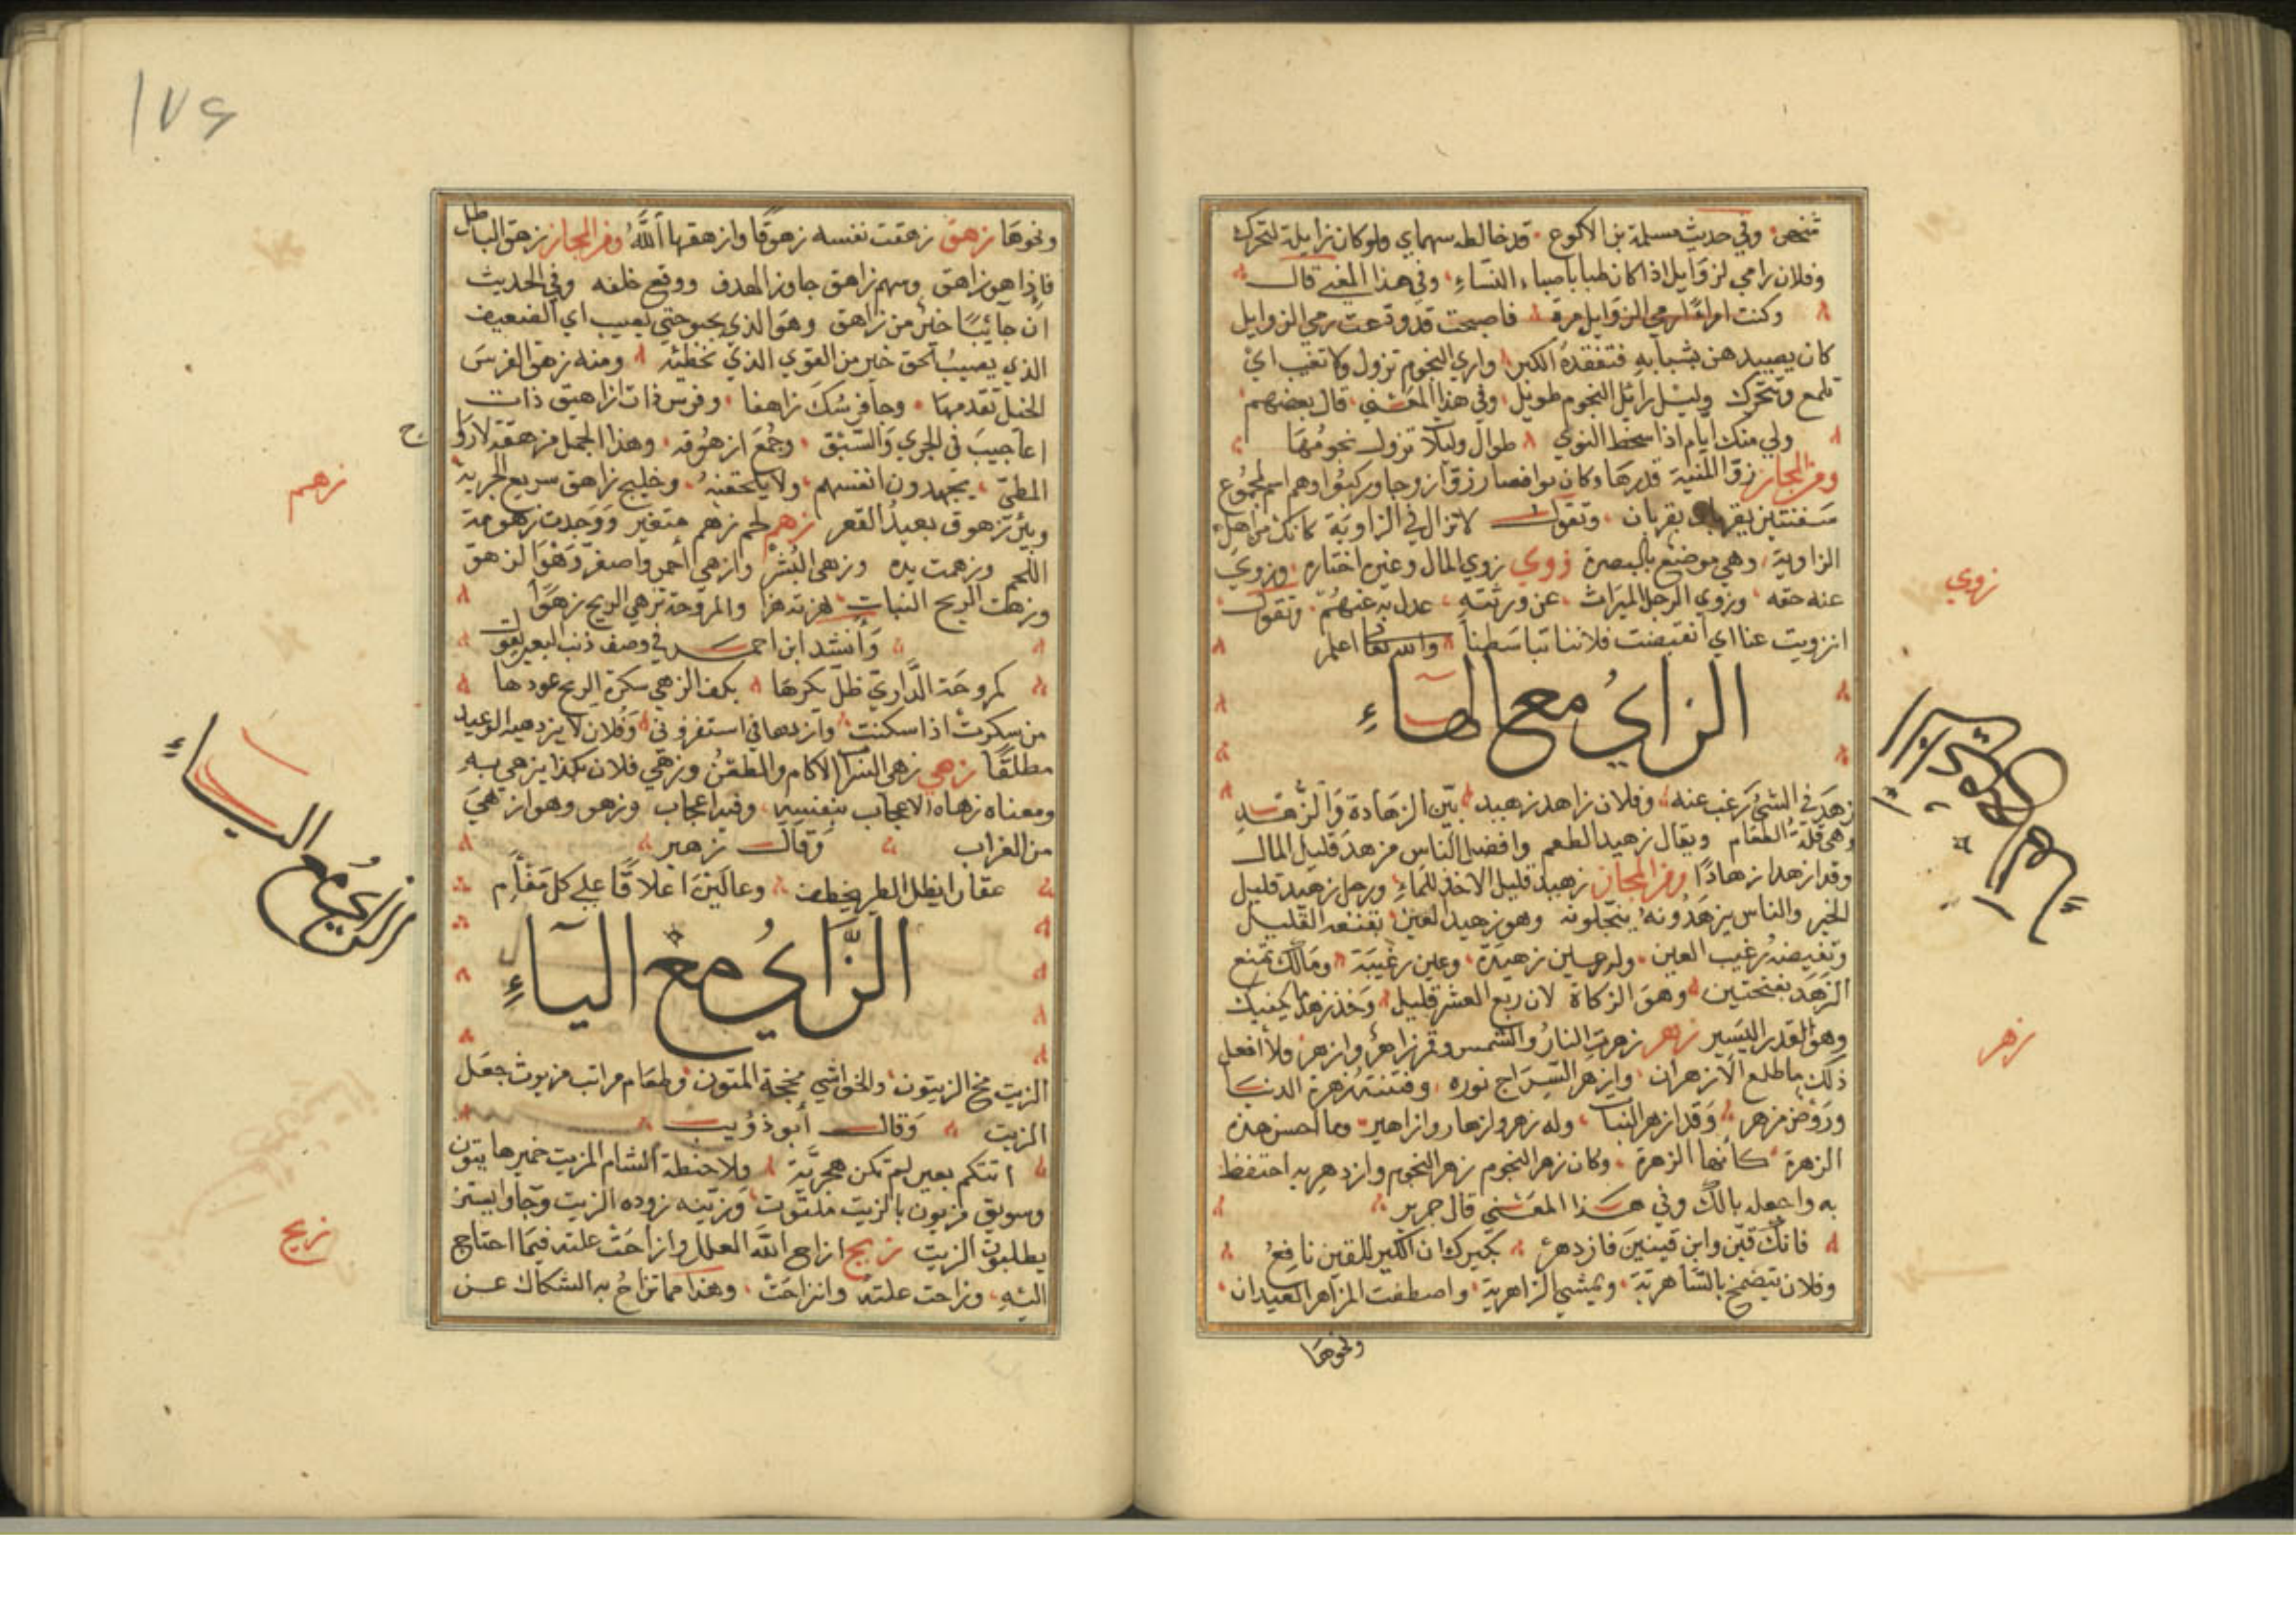 شخص وفي حديث مسلمة بن الاكوع قد خالطه سهماي ولو كان زايلة لتحرك
وفلان رامي لزوايل اذا كان طبا باصباء النساء وفي هذا المعنى قال
وكنت امرأ ارمي الزوايل مرة فاصبحت قد ودعت رمي الزوايل
كان يصيبدهن بشبابه ففقده الكبر واري النجوم تزول ولا تغيب اي
تلمع وتتحرك وليل زائل النجوم طويل وفي هذا المعنى قال بعضهم
ولي منك ايام اذا سخط النوي طوال وليلا تزول نجومها
ومن المجاز زو المنية قدرها وكان توا فصار زوا
سفنتين يقربان وتقول لا تزال في الزاوية كانك من اهل
الزاوية وهي موضع بالبصرة زوي زوي المال وغيره اختاره وزوي
عنه حقه وزوي الرجل الميراث عن ورثته عدل به عنهم وتقول
انزويت عنا اي انقبضت فلاننا تباسطنا والله تعالى اعلم
الزاي مع الهاء
زهد في الشيء رغب عنه وفلان زاهد زهيد بين الزهادة والزهد
وهي قلة الطعام ويقال زهيد الطعم وافضل الناس مزهد قليل المال
وقد ازهد ازهادا ومن المجاز زهيد قليل الاخذ للماء ورجل زهيد قليل
الخير والناس يزهدونه يبخلونه وهو زهيد العين يقنعه القليل
ونقيضه رغيب العين وله عين زهيدة وعين رغيبة ومالك تمنع
الزهد بفتحتين وهو الزكاة لان ربع العشر قليل وخذ زهد ما يكفيك
وهو القدر اليسير زهر زهرت النار والشمس وقمر زاهر وازهر ولا افعل
ذلك ما طلع الازهران وازهر السراج نوره وفتنته زهرة الدنيا
وروض مزهر وقد ازهر النبات وله زهر وازهار وازاهير وما احسن هذه
الزهرة كانها الزهرة وكان زهر النجوم زهر النجوم وازدهر به احتفظ
به واجعله بالك وفي هذا المعنى قال جرير
فانك قين وابن قينين فازدهر بكيرك ان الكير للقين نافع
وفلان يتضمخ بالساهرية ويمشي الزاهرية واصطفت المزاهر العيدان
ونحوها
زوي
زهر
١٧٦
ونحوها زهق زهقت نفسه زهوقا وازهقها الله ومن المجاز زهق الباطل
فاذا هو زاهق وسهم زاهق جاوز الهدف ووقع خلفه وفي الحديث
ان حابيا خير من زاهق وهو الذي يحبو حتى يصيب اي الضعيف
الذي يصيب الحق خير من القوي الذي يخطئه ومنه زهق الفرس
الخيل تقدمها وجاء فرسك زاهقا وفرس ذات ازاهيق ذات
اعاجيب في الجري والسبق وجمع ازهوقه وهذا الجمل مزهقة لارواح
المطي يجهدون انفسهم ولا يلحقنه وخليج زاهق سريع الجرية
وبئر زهوق بعيد القعر زهم لحم زهم متغير ووجدت زهومة
اللحم وزهمت يده وزهى البسر وازهي احمر واصفر وهو الزهو
وزهت الريح النبات هزته هزا والمروحة تزهي الريح زهوا
وانشد ابن احمر في وصف ذنب البعير يقول
كمروحة الداري ظل يكرها بكف الزهي سكرة الريح عودها
من سكرت اذا سكنت وازدهاني استفزوني وفلان لا يزدهيه الوعيد
مطلقا زهي زهي السراب الاكام والظعن وزهي فلان بكذا يزهي به
ومعناه زهاه الاعجاب بنفسه وفيه اعجاب وزهو وهو ازهي
من الغراب وقال زهير
عقارا يظل الطير يخطف وعالين اعلاقا على كل مفأم
الزاي مع الياء
الزيت مخ الزيتون والحواشي مخخة المتون وطعام مزيت جعل
الزيت وقال ابو ذؤيب
اتتكم بعير لم تكن هجرية ولا حنطة الشام المزيت خميرها
وسويق مزيون بالزيت ملتوت وزيته زوده الزيت وجاوا يستز
يطلبون الزيت زيح ازاح الله العلل وازاحت علته فيما احتاج
اليه وزاحت علته وانزاحت وهذا مما تزاح به الشكاك عن
زهم
الزاي مع الياء
زيح